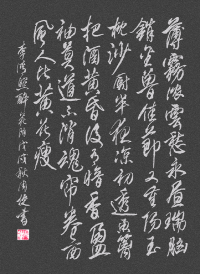 薄霧濃雲愁永晝瑞腦
銷金獸佳節又重陽玉
枕紗厨半夜涼初透東籬
把酒黃昏後有暗香盈
袖莫道不消魂帘卷西
風人比黃花瘦
李清照醉花陰戊戌秋